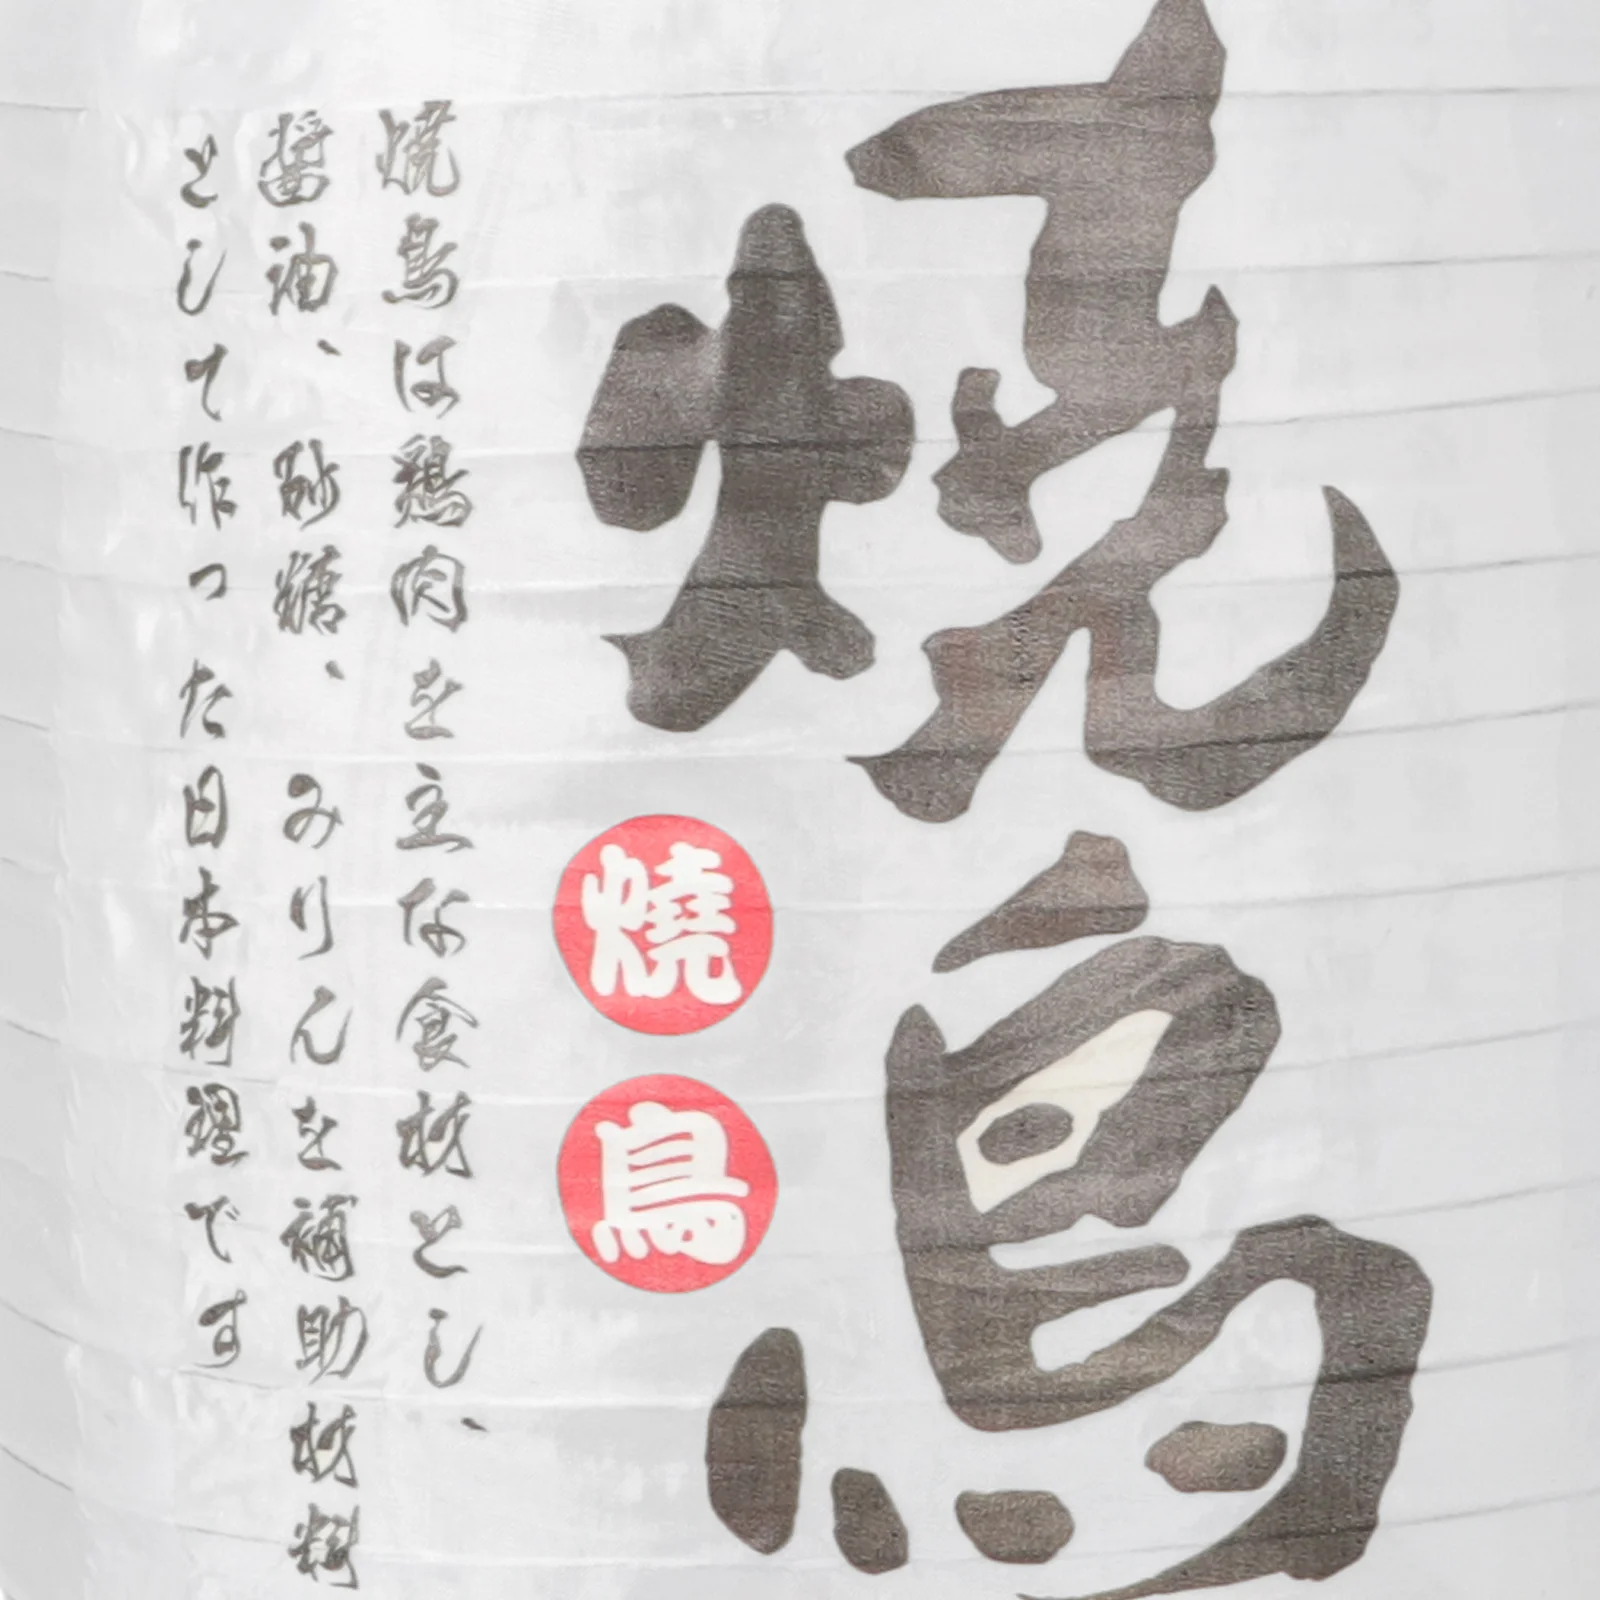 焼鳥
燒
鳥
焼鳥は鶏肉を主な食材とし、
醤油、砂糖、みりんを補助材料
として作った日本料理です